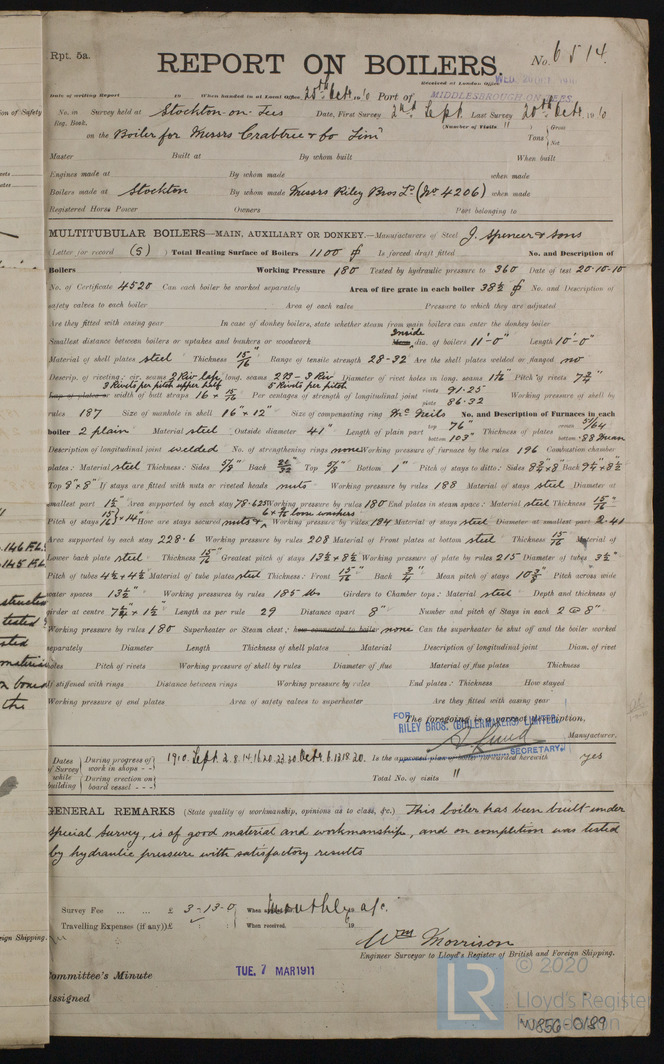 Rpt. 5a.
REPORT ON BOILERS.
No. 6514.
Received at London Office WED.
Date of writing Report 19 When handed in at Local Office 25th Oct. 1910 Port of MIDDLESBROUGH-ON-TEES
No. in Survey held at Stockton-on-Tees Date, First Survey 2nd Sept. Last Survey 20th Oct. 1910
Reg. Book. (Number of Visits 11) Gross
on the Boiler for Messrs Crabtree & Co Limd Tons Net
Master Built at By whom built When built
Engines made at By whom made when made
Boilers made at Stockton By whom made Messrs Riley Bros Ld (No 4206) when made
Registered Horse Power Owners Port belonging to
MULTITUBULAR BOILERS—MAIN, AUXILIARY OR DONKEY.—Manufacturers of Steel J. Spencer & Sons
(Letter for record (S)) Total Heating Surface of Boilers 1100 Is forced draft fitted No. and Description of
Boilers Working Pressure 180 Tested by hydraulic pressure to 360 Date of test 20.10.10
No. of Certificate 4520 Can each boiler be worked separately Area of fire grate in each boiler 38½ No. and Description of
safety valves to each boiler Area of each valve Pressure to which they are adjusted
Are they fitted with easing gear In case of donkey boilers, state whether steam from main boilers can enter the donkey boiler
Smallest distance between boilers or uptakes and bunkers or woodwork Inside dia. of boilers 11'-0" Length 10'-0"
Material of shell plates steel Thickness 15/16" Range of tensile strength 28-32 Are the shell plates welded or flanged no
Descrip. of riveting: cir. seams 2 Riv laps long. seams Diameter of rivet holes in long. seams Pitch of rivets
3 Rivets per pitch upper half 5 Rivets per pitch
Lap of plates or width of butt straps Per centages of strength of longitudinal joint rivets 91.25 plate 86.32 Working pressure of shell by
rules 187 Size of manhole in shell 16" x 12" Size of compensating ring McNeils No. and Description of Furnaces in each
boiler 2 plain Material steel Outside diameter 41" Length of plain part top 76" bottom 103" Thickness of plates crown bottom
Description of longitudinal joint welded No. of strengthening rings none Working pressure of furnace by the rules 196 Combustion chamber
plates: Material steel Thickness: Sides 5/8" Back Top 5/8" Bottom 1" Pitch of stays to ditto: Sides Back
Top 8" x 8" If stays are fitted with nuts or riveted heads nuts Working pressure by rules 188 Material of stays steel Diameter at
smallest part Area supported by each stay 78.625 Working pressure by rules 180 End plates in steam space: Material steel Thickness 15/16"
Pitch of stays How are stays secured nuts & loose washers Working pressure by rules 194 Material of stays steel Diameter at smallest part 2.41
Area supported by each stay 228.6 Working pressure by rules 208 Material of Front plates at bottom steel Thickness 15/16" Material of
Lower back plate steel Thickness 15/16" Greatest pitch of stays 13½ x 8½ Working pressure of plate by rules 215 Diameter of tubes 3½"
Pitch of tubes 4½ x 4½ Material of tube plates steel Thickness: Front 15/16" Back 3/4" Mean pitch of stays Pitch across wide
water spaces 13½" Working pressures by rules 185 lbs Girders to Chamber tops: Material steel Depth and thickness of
girder at centre Length as per rule 29 Distance apart 8" Number and pitch of Stays in each 2 @ 8"
Working pressure by rules 180 Superheater or Steam chest; how connected to boiler none Can the superheater be shut off and the boiler worked
separately Diameter Length Thickness of shell plates Material Description of longitudinal joint Diam. of rivet
holes Pitch of rivets Working pressure of shell by rules Diameter of flue Material of flue plates Thickness
If stiffened with rings Distance between rings Working pressure by rules End plates: Thickness How stayed
Working pressure of end plates Area of safety valves to superheater Are they fitted with easing gear
The foregoing is a correct description,
FOR RILEY BROS. (BOILERMAKERS) LIMITED.
Manufacturer.
SECRETARY.
Dates of Survey while building During progress of work in shops - - 1910. Sept. 2.8.14.16.20.23.30. Oct. 6.13.18.20. Is the approved plan of boiler forwarded herewith yes
During erection on board vessel - - Total No. of visits 11
GENERAL REMARKS (State quality of workmanship, opinions as to class, &c.) This boiler has been built under
special survey, is of good material and workmanship, and on completion was tested
by hydraulic pressure with satisfactory results
Survey Fee ... ... £ 3-13-0 When applied for, Monthly a/c. 19
Travelling Expenses (if any) £ When received, 19
Wm Morrison
Engineer Surveyor to Lloyd's Register of British and Foreign Shipping.
Committee's Minute TUE. 7 MAR 1911
Assigned
LR © 2020
Lloyd's Register
Foundation
W856-0189